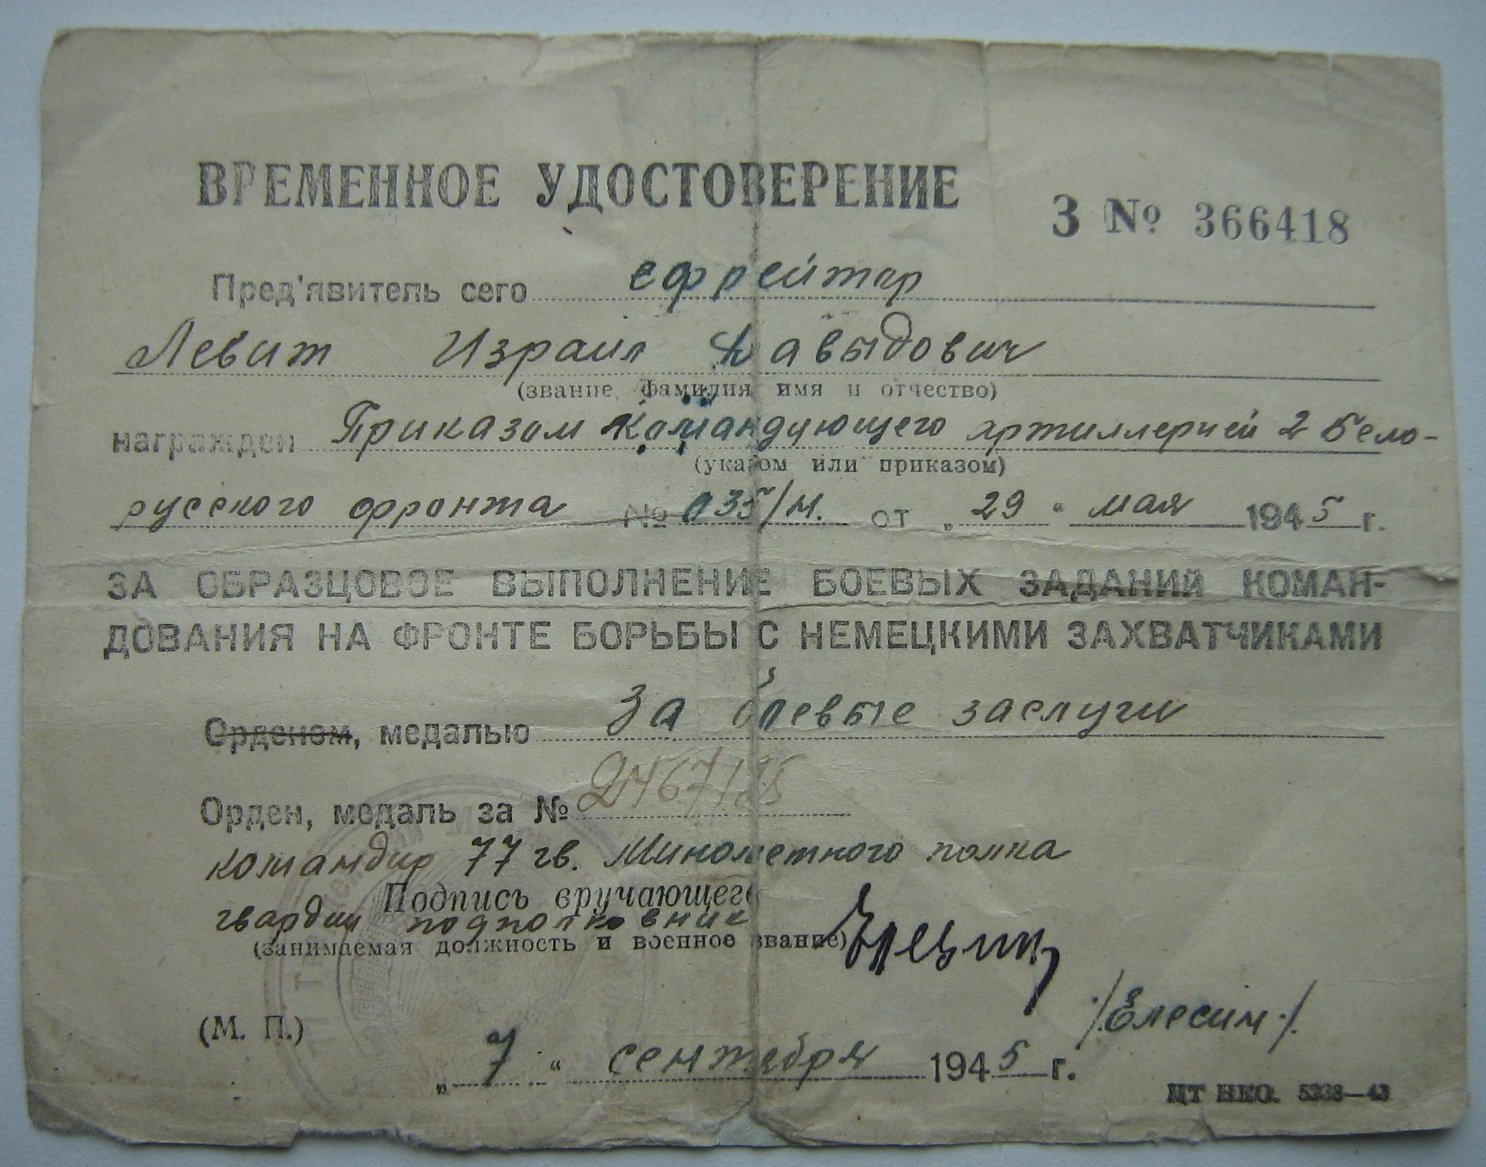 ВРЕМЕННОЕ УДОСТОВЕРЕНИЕ
З № 366418
Пред'явитель сего ефрейтор
Левит Израил Давыдович
(звание, фамилия имя и отчество)
награжден Приказом Командующего артиллерией 2 Бело-
(указом или приказом)
русского фронта № 035/н. от „29“ мая 1945 г.
ЗА ОБРАЗЦОВОЕ ВЫПОЛНЕНИЕ БОЕВЫХ ЗАДАНИЙ КОМАН-
ДОВАНИЯ НА ФРОНТЕ БОРЬБЫ С НЕМЕЦКИМИ ЗАХВАТЧИКАМИ
Орденом, медалью За боевые заслуги
Орден, медаль за №
командир 77 гв. Минометного полка
Подпись вручающего
гвардии подполковник
(занимаемая должность и военное звание)
/Елесин./
(М. П.)
„7“ сентября 1945 г.
ЦТ НКО. 5238—43